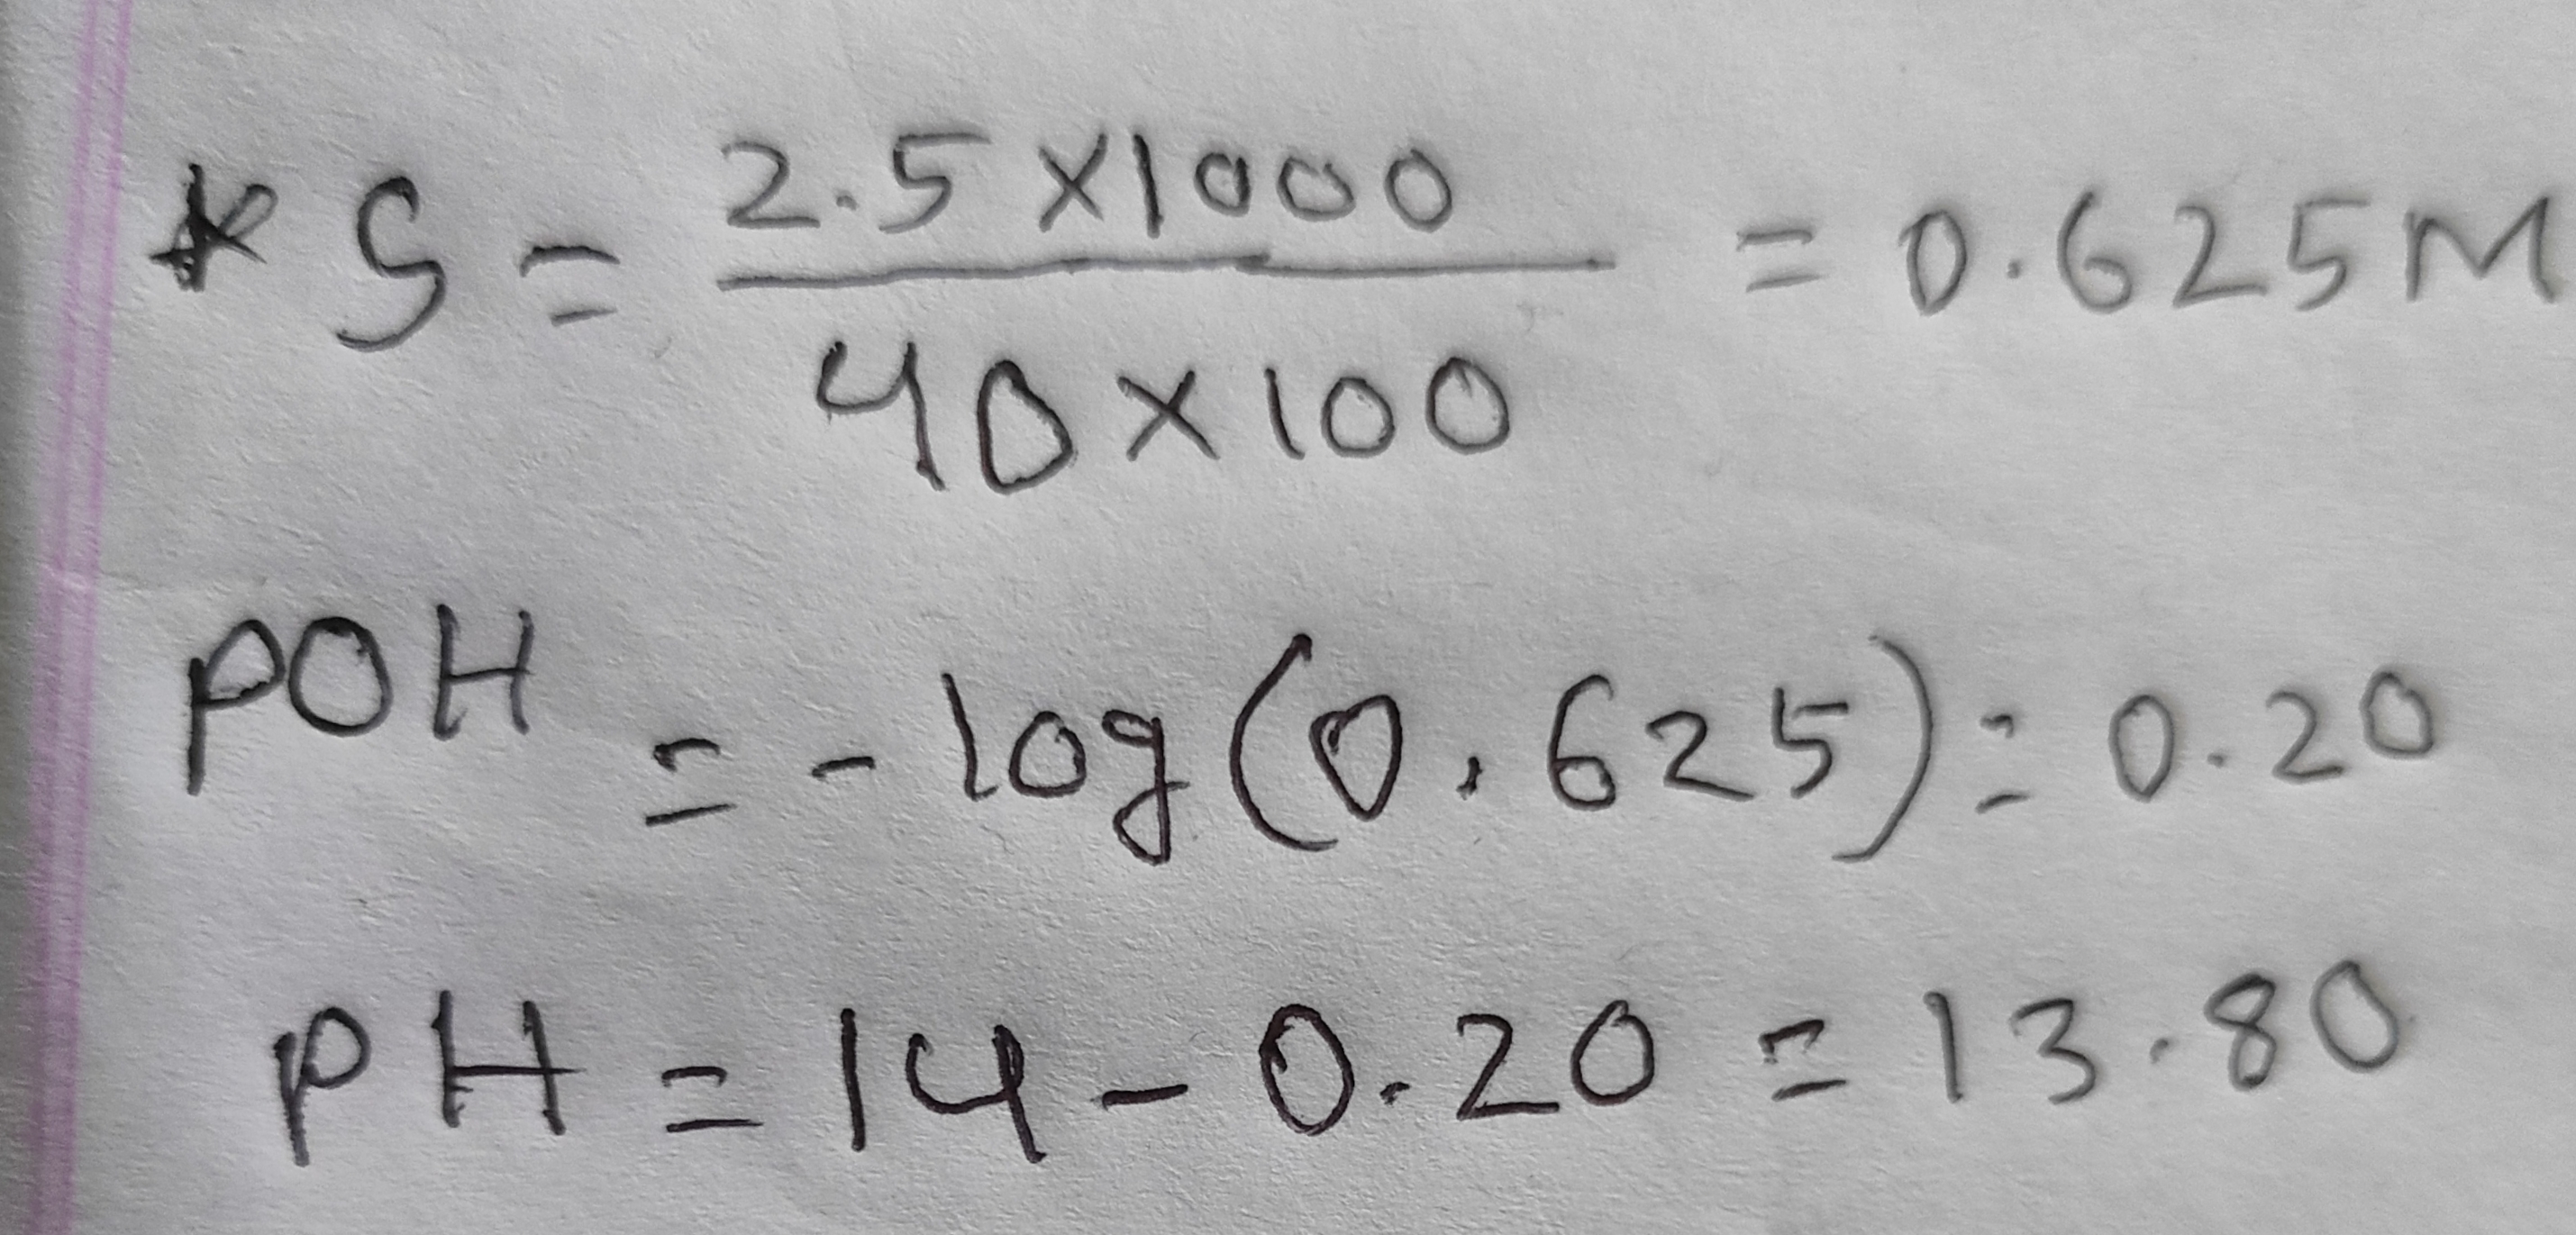 * S = 2.5 x 1000 / 40 x 100 = 0.625 M
POH = - log (0.625) = 0.20
PH = 14 - 0.20 = 13.80